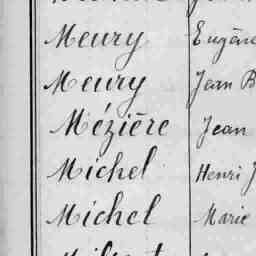 Meury Eugène
Meury Jean B
Mézière Jean
Michel Henri J
Michel Marie